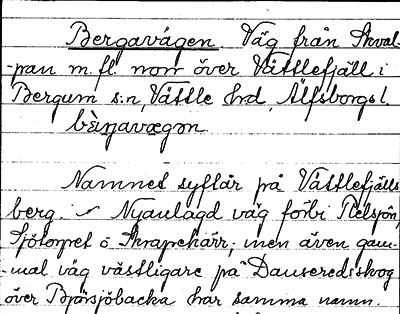 Bergavägen Väg från Skval-
-pan m.fl. norr över Vättlefjäll i
Bergum s:n, Vättle hrd, Älfsborgs l.
bæ̀rjavægən

Namnet syftar på Vättlefjälls
berg. – Nyanlagd väg förbi
Sjötorpet o Skrapekärr; men även gam-
-mal väg västligare på Dansered skog
över Björsjöbacka har samma namn.